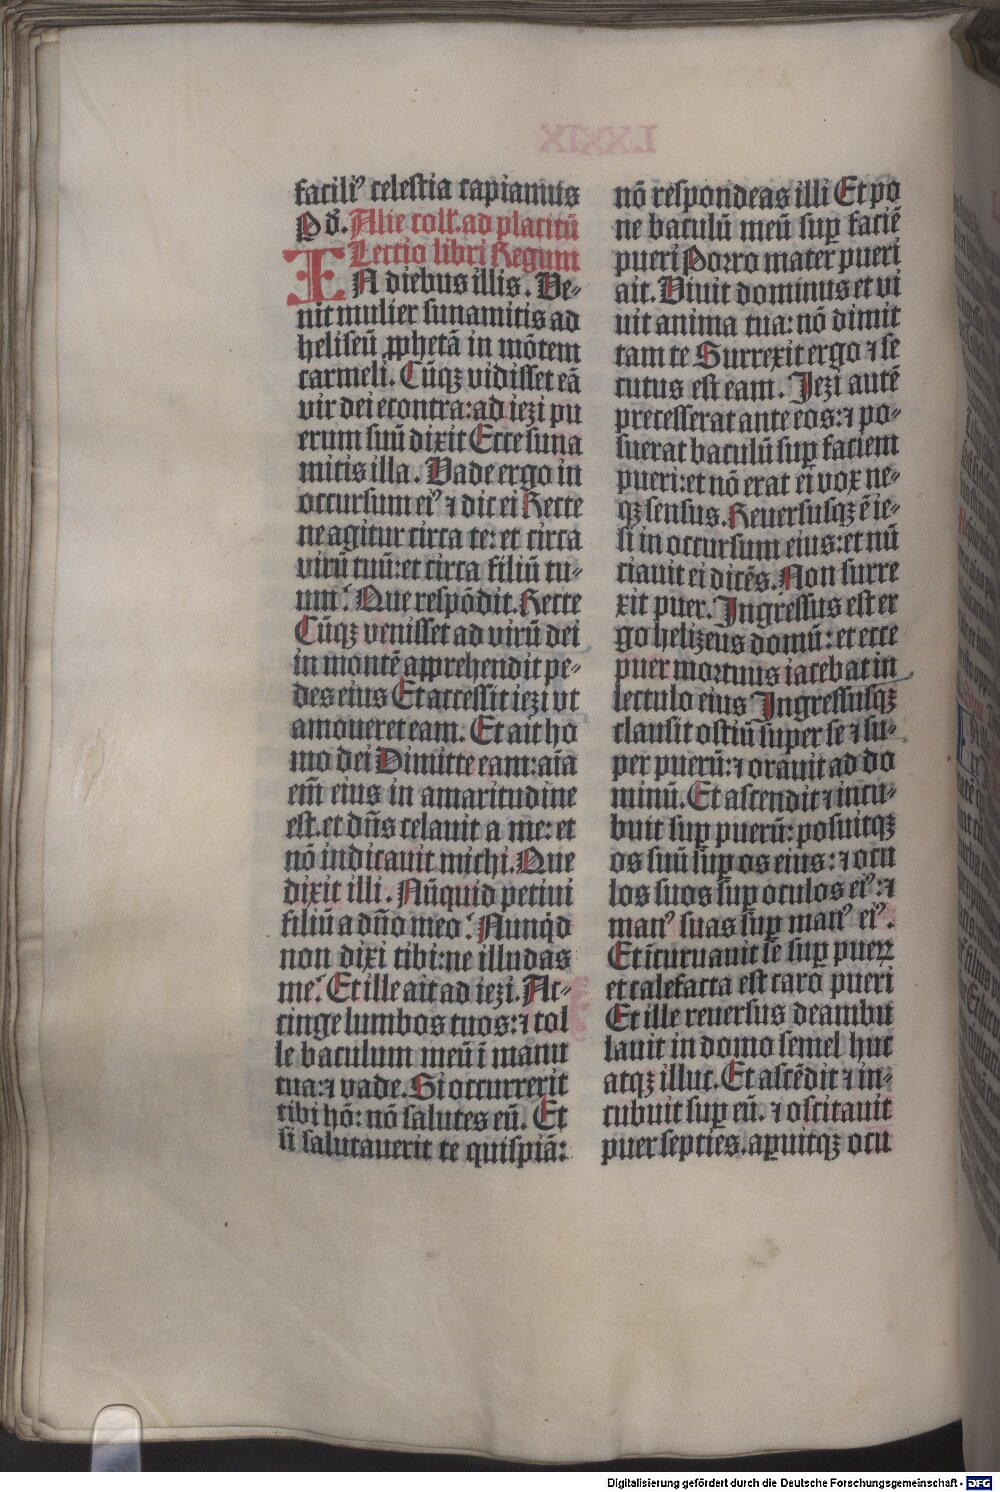 faciliꝰ celestia capiamus
P d̄. Alie coll̄. ad placitū
Lectio libri Regum
IN diebus illis. Ve-
nit mulier sunamitis ad
heliseū ꝓphetā in mōtem
carmeli. Cūqꝫ vidisset eā
vir dei econtra: ad iezi pu
erum suū dixit Ecce suna
mitis illa. Vade ergo in
occursum eiꝰ ⁊ dic ei Recte
ne agitur circa te: et circa
virū tuū: et circa filiū tu-
um? Que respōdit. Recte
Cūqꝫ venisset ad virū dei
in montē apprehendit pe-
des eius Et accessit iezi vt
amoueret eam. Et ait ho
mo dei Dimitte eam: aīa
em̄ eius in amaritudine
est. et dn̄s celauit a me: et
nō indicauit michi. Que
dixit illi. Nūquid petiui
filiū a dn̄o meo? Nunqd
non dixi tibi: ne illudas
me? Et ille ait ad iezi. Ac-
cinge lumbos tuos: ⁊ tol
le baculum meū ī manu
tua: ⁊ vade. Si occurrerit
tibi hō: nō salutes eū. Et
si salutauerit te quispiā:
nō respondeas illi Et po
ne baculū meū suꝑ faciē
pueri Porro mater pueri
ait. Viuit dominus et vi
uit anima tua: nō dimit
tam te Surrexit ergo ⁊ se
cutus est eam. Jezi autē
precesserat ante eos: ⁊ po-
suerat baculū suꝑ faciem
pueri: et nō erat ei vox ne-
qꝫ sensus. Reuersusqꝫ ē ie-
si in occursum eius: et nū
ciauit ei dicēs. Non surre
xit puer. Ingressus est er
go helizeus domū: et ecce
puer mortuus iacebat in
lectulo eius Ingressusqꝫ
clausit ostiū super se ⁊ su-
per puerū: ⁊ orauit ad do
minū. Et ascendit ⁊ incu-
buit suꝑ puerū: posuitqꝫ
os suū suꝑ os eius: ⁊ ocu
los suos suꝑ oculos eiꝰ: ⁊
manꝰ suas suꝑ manꝰ eiꝰ.
Et īcuruauit se suꝑ pueꝝ
et calefacta est caro pueri
Et ille reuersus deambu
lauit in domo semel huc
atqꝫ illuc. Et ascēdit ⁊ in-
cubuit suꝑ eū. ⁊ oscitauit
puer septies. aꝑuitqꝫ ocu
Digitalisierung gefördert durch die Deutsche Forschungsgemeinschaft - DFG